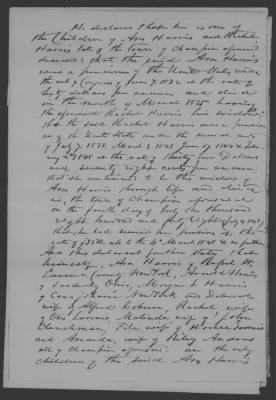 He declares that he is one of
the Children of Asa Harris and Rachel
Harris late of the town of Champion aforesaid
deceased; that the said Asa Harris
was a pensioner of the United States under
the act of Congress of June 7, 1832 at the rate of
Sixty dollars per annum and died
in the month of March 1835 leaving
the aforesaid Rachel Harris his widow
that the said Rachel Harris was a pension
er of the United States under the several acts
of July 7, 1838 March 3, 1843 June 17 1844 &
2 1848 at the rate of thirty four Dollars
and seventy eight cents per annum
that she continued to be the widow of
Asa Harris through life and died
in the town of Champion aforesaid
on the fourth day of July one thousand
eight hundred and forty eight (July 4 1848)
that she had received her pension at the
rate of to the 4th March 1848 & no further
And this declarant further states that
himself, Asa Harris of Rutland St.
Lawrence County New York, Harris
of Sandusky Ohio, Morgan L Harris
of New York and Deborah
wife of Alfred Coburn, Rachel wife
of Otis Loomis, Malinda wife of John
wife of Horace Loomis
and Amanda wife of Riley Andrus
all of Champion aforesaid are the only
children of the said Asa Harris